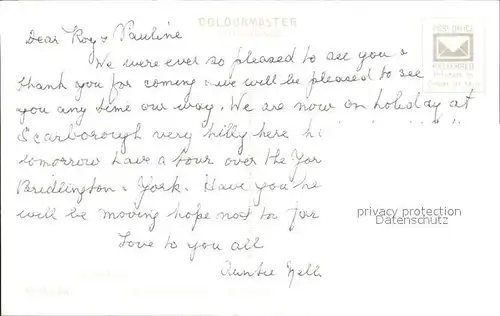 COLOURMASTER
POST OFFICE
PREFERRED
Dear Roy & Pauline
We were ever so pleased to see you &
thank you for coming & we will be pleased to see
you any time our way. We are now on holiday at
Scarborough very hilly here
tomorrow have a tour over the Yor
Bridlington & York. Have you he
will be moving hope not to far
Love to you all
Auntie Nell
privacy protection
Datenschutz